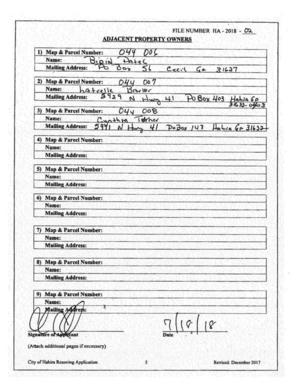 FILE NUMBER HA - 2018 - 02
ADJACENT PROPERTY OWNERS
1) Map & Parcel Number: 044 006
Name: Bipin Patel
Mailing Address: PO Box 56 Cecil Ga 31627
2) Map & Parcel Number: 044 007
Name:
Mailing Address: 5929 N Hwy 41 PO Box 403 Hahira Ga
3) Map & Parcel Number: 044 008
Name: Cynthia
Mailing Address: 5991 N Hwy 41 PO Box 143 Hahira Ga 31632
4) Map & Parcel Number:
Name:
Mailing Address:
5) Map & Parcel Number:
Name:
Mailing Address:
6) Map & Parcel Number:
Name:
Mailing Address:
7) Map & Parcel Number:
Name:
Mailing Address:
8) Map & Parcel Number:
Name:
Mailing Address:
9) Map & Parcel Number:
Name:
Mailing Address:
7/18/18
Signature of Applicant Date
(Attach additional pages if necessary)
City of Hahira Rezoning Application 5 Revised: December 2017